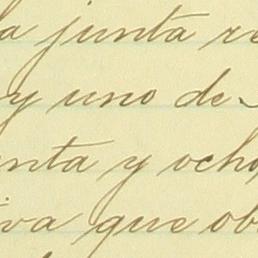 a junta re
y uno de
nta y ocho
iva que ob